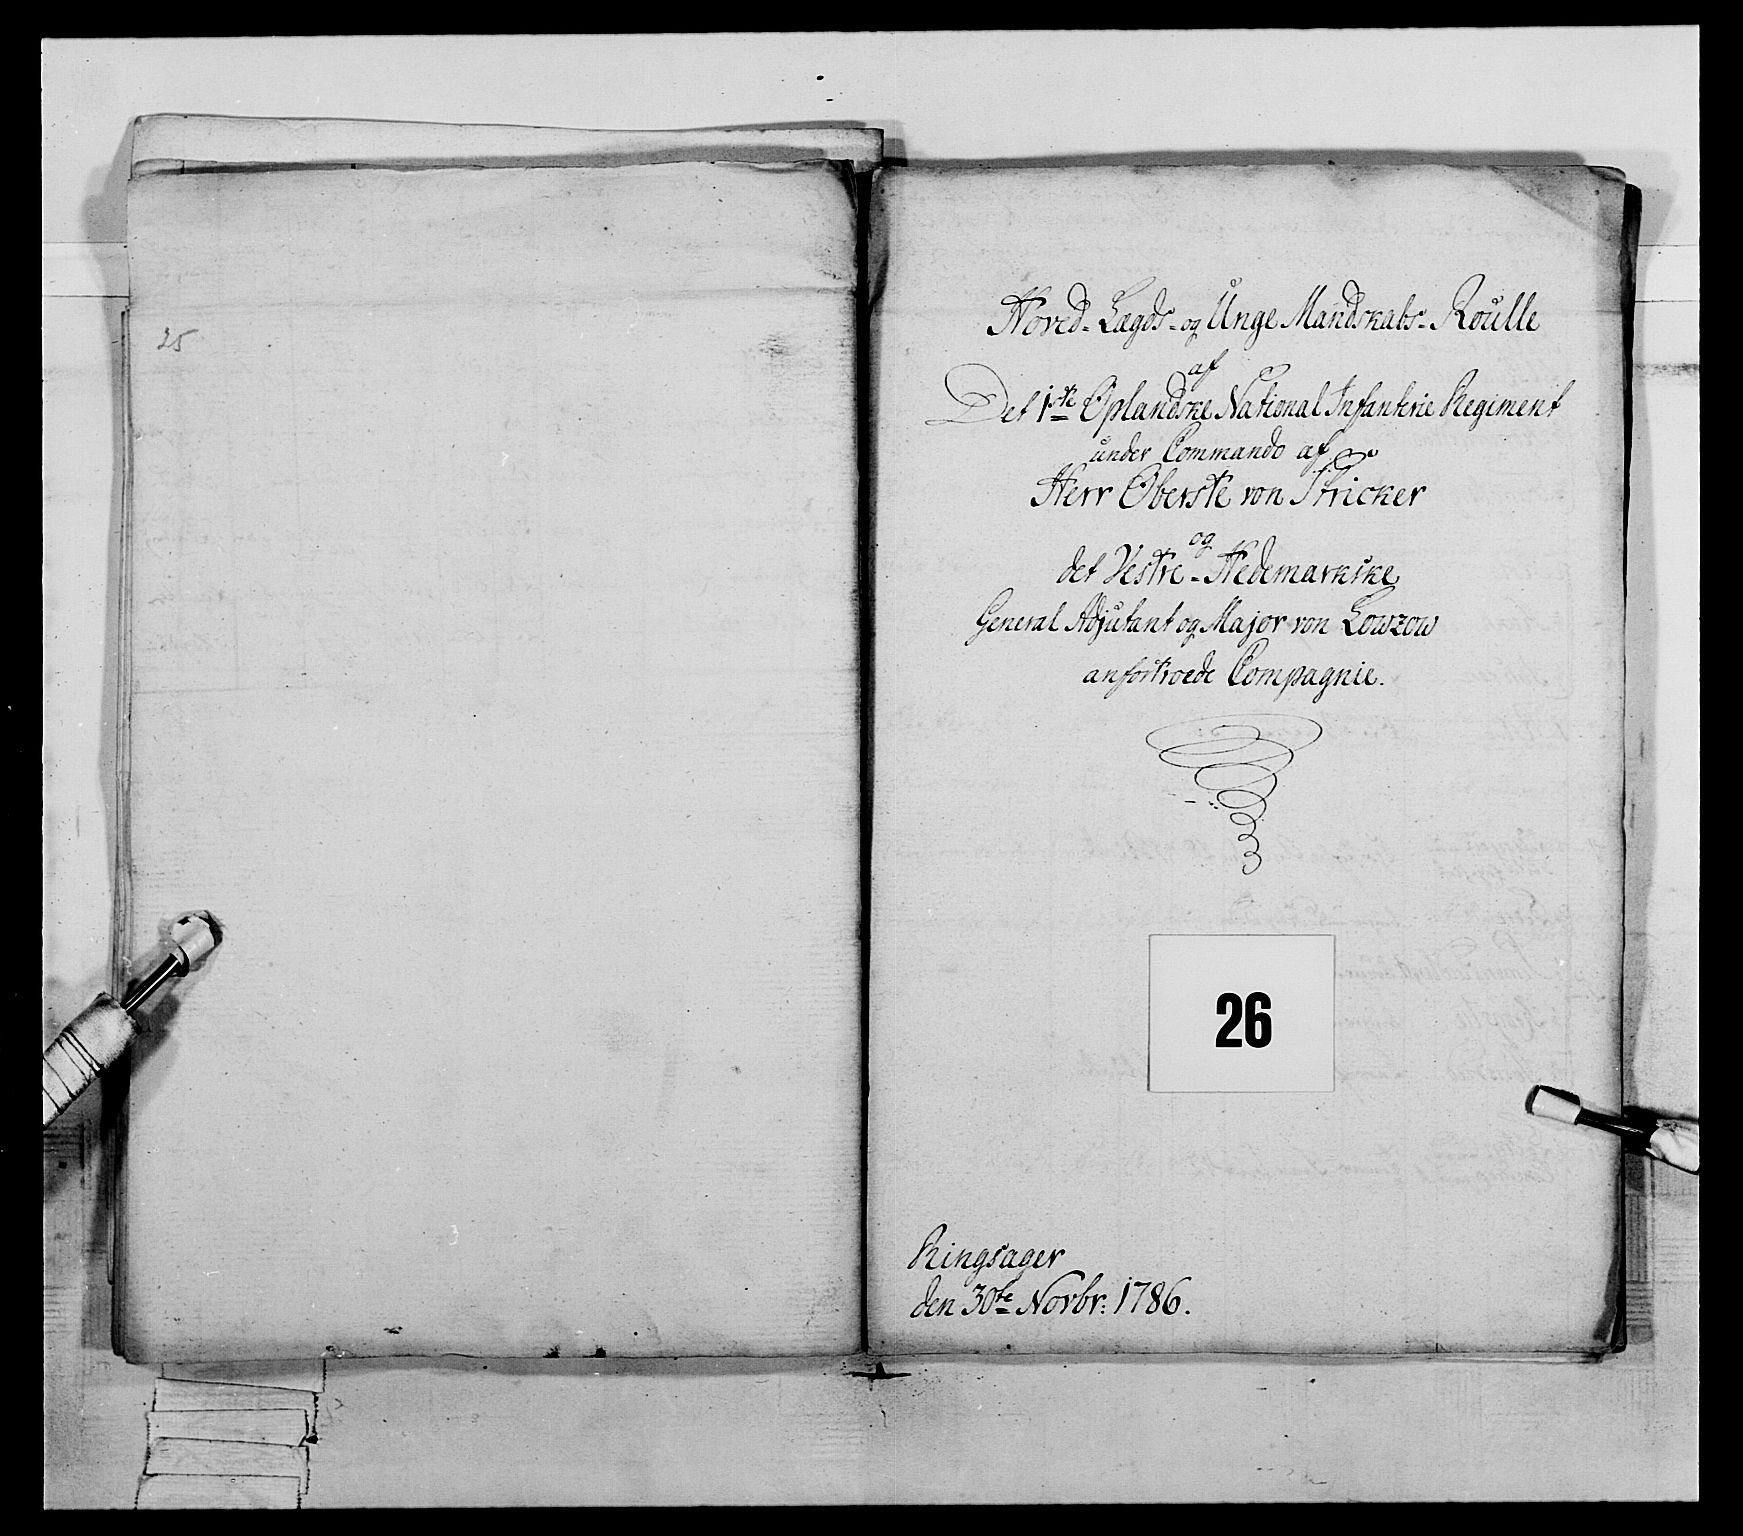 25
Hoved- Lægds- og Unge Mandskabs- Roulle
af
Det 1ste Oplandske National Infanterie Regiment
under Commando af
Herr Oberste von Stricker
og
det Vestre- Hedemarkske
General Adjutant og Major von Lowzow
anfortroede Compagnie.
26
Ringsager
den 30te Novbr: 1786.